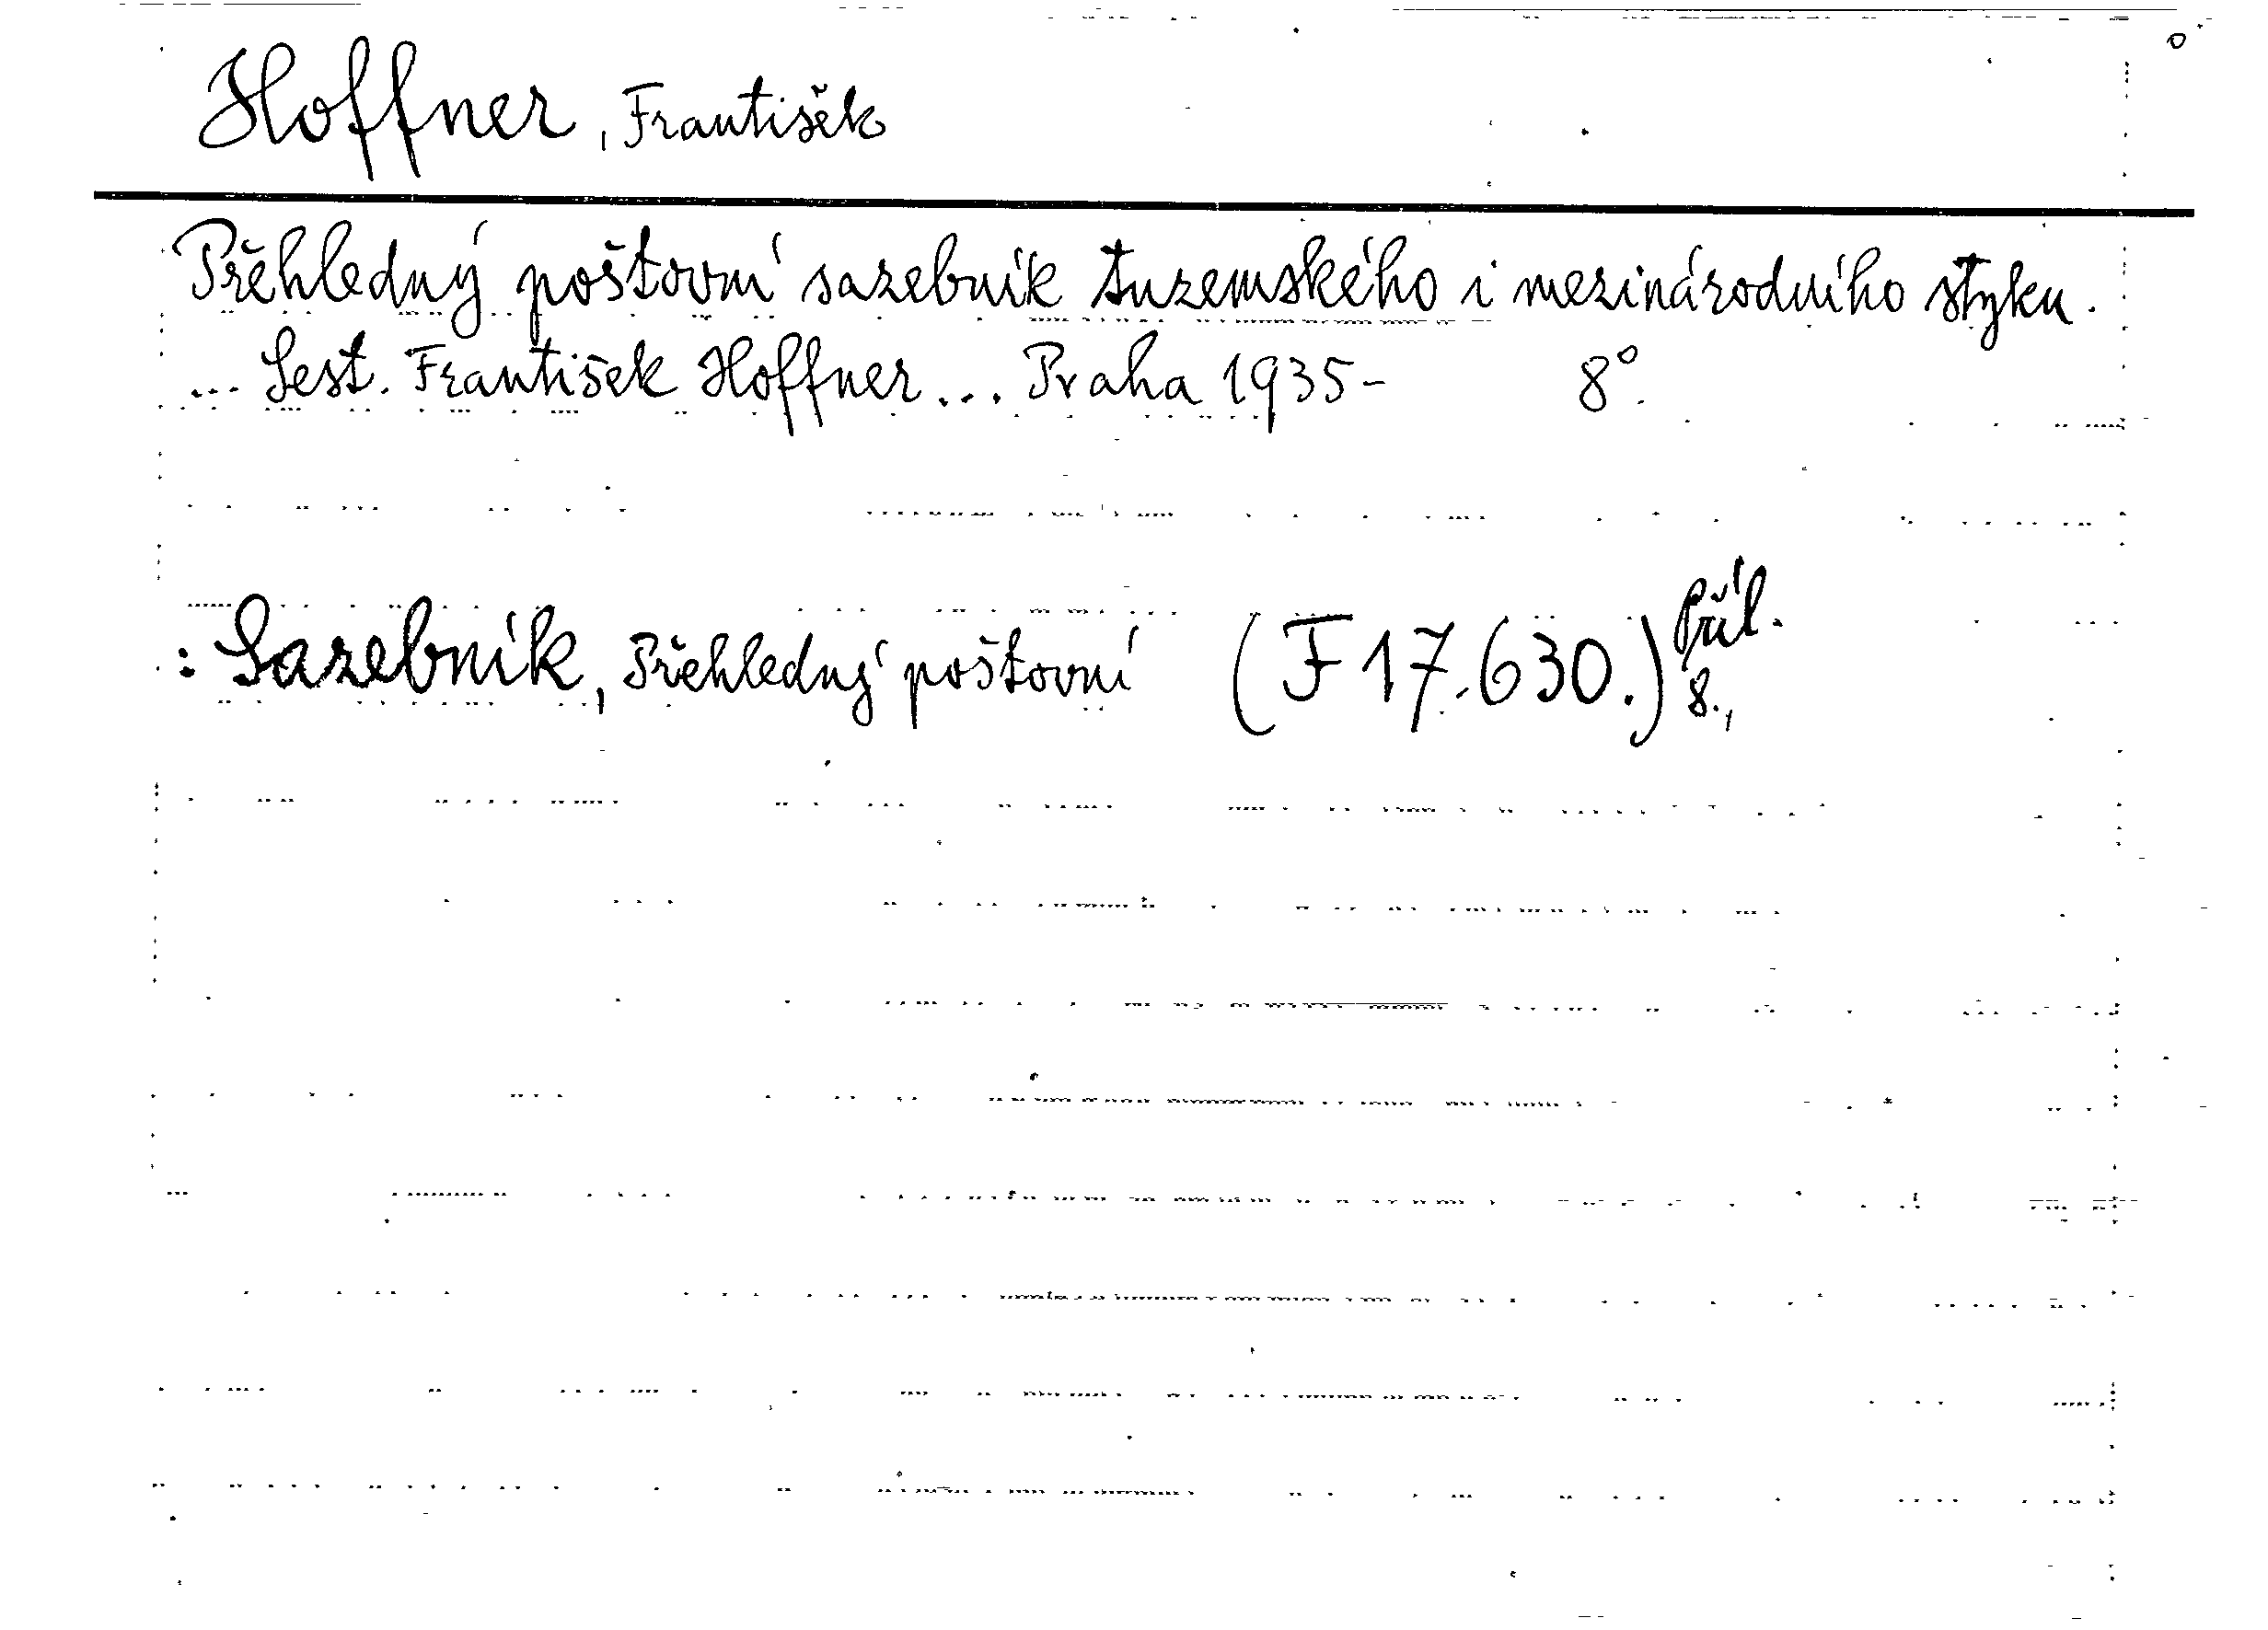 Hoffner, František
Přehledný poštovní sazebník tuzemského i mezinárodního styku.
... Sest. František Hoffner... Praha 1935- 8°.
: Sazebník, Přehledný poštovní (F 17.630.) Příl. 8.,